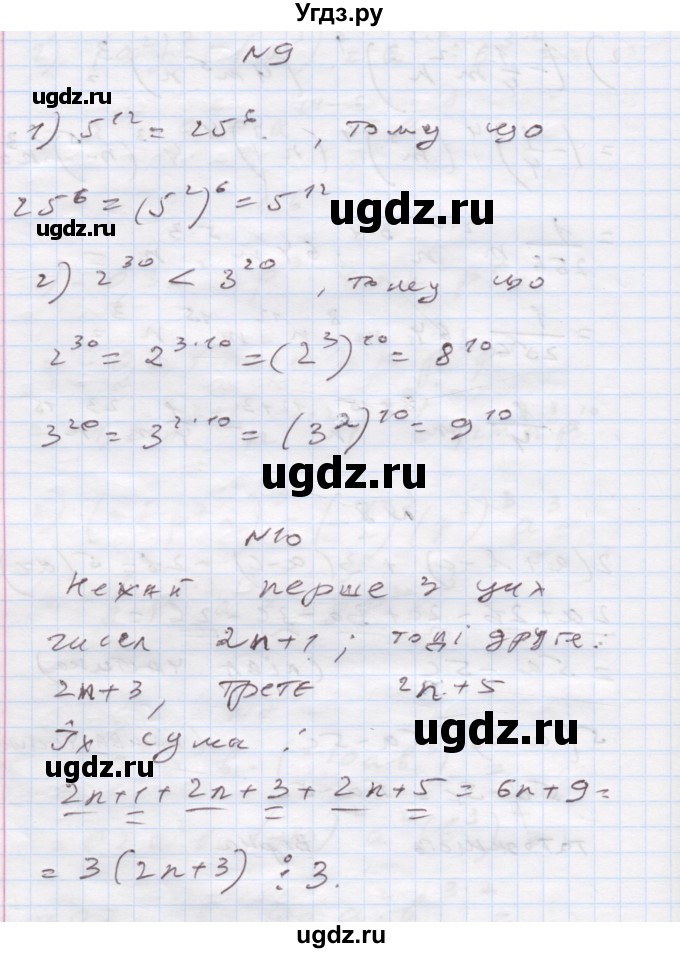 Угдз.ру
N9
ugdz.ru
1) 5^12 = 25^6, тому що
25^6 = (5^2)^6 = 5^12
ugdz.ru
ugdz.ru
2) 2^30 < 3^20, тому що
2^30 = 2^3·10 = (2^3)^10 = 8^10
ugdz.ru
3^20 = 3^2·10 = (3^2)^10 = 9^10
ugdz.ru
N10
Нехай перше з цих
чисел 2n+1; тоді друге:
2n+3, трете 2n+5
ugdz.ru
Їх сума:
ugdz.ru
2n+1+2n+3+2n+5 = 6n+9 =
= 3(2n+3) ⋮ 3.
ugdz.ru